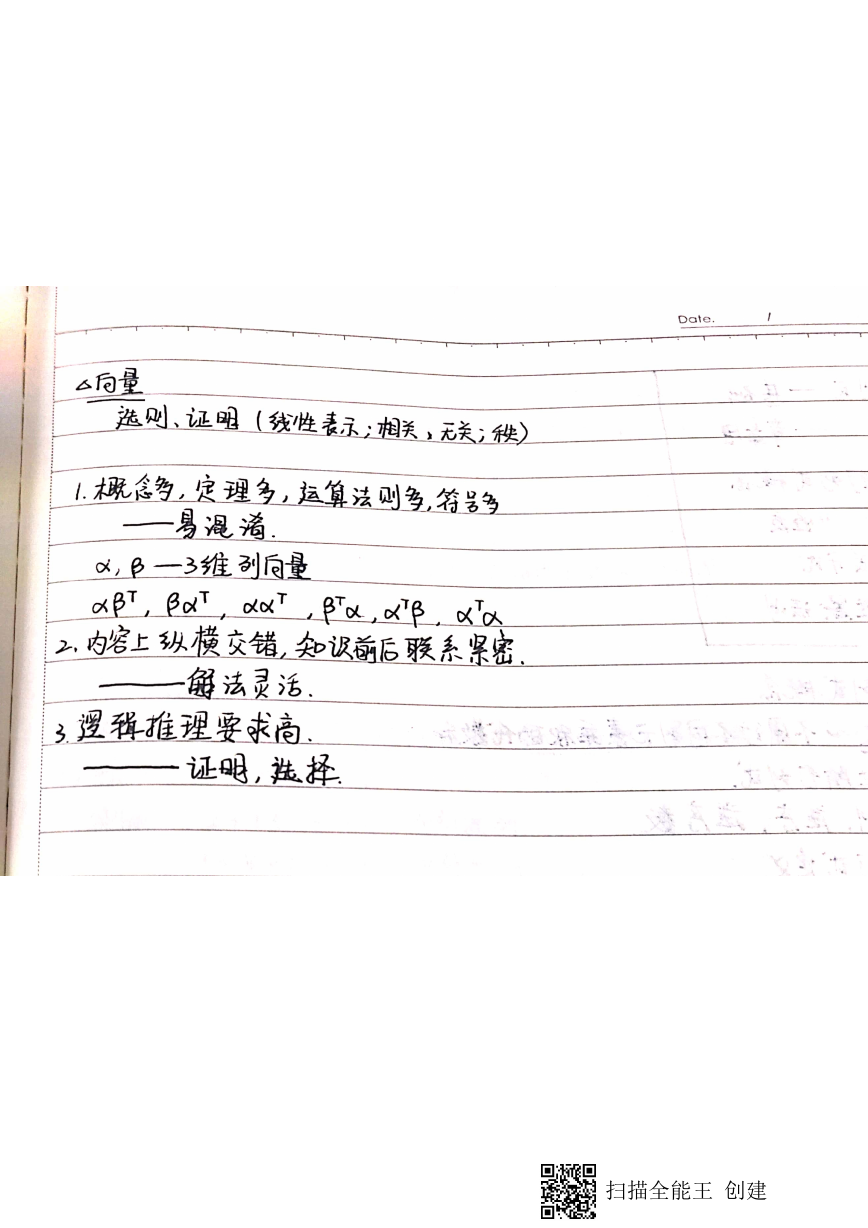 Date. /
△向量
选则、证明（线性表示；相关、无关；秩）
1. 概念多，定理多，运算法则多，符号多
——易混淆.
α, β —3维列向量
αβᵀ, βαᵀ, ααᵀ, βᵀα, αᵀβ, αᵀα
2. 内容上纵横交错，知识前后联系紧密.
——解法灵活.
3. 逻辑推理要求高.
——证明，选择.
扫描全能王 创建